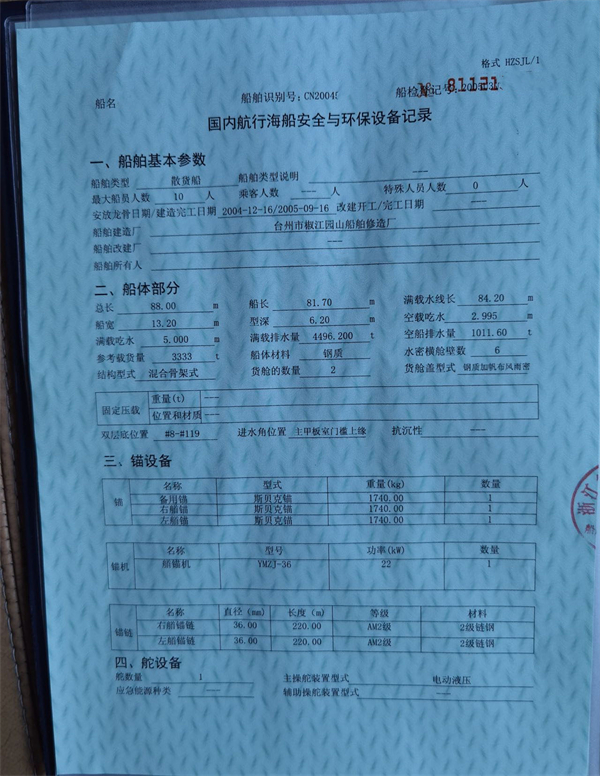 格式 HZSJL/1
船名 船舶识别号：CN2004 船检登记号：
81121
国内航行海船安全与环保设备记录
一、船舶基本参数
船舶类型 散货船 船舶类型说明 ---
最大船员人数 10 人 乘客人数 --- 人 特殊人员人数 0 人
安放龙骨日期/建造完工日期 2004-12-16/2005-09-16 改建开工/完工日期 ---
船舶建造厂 台州市椒江园山船舶修造厂
船舶改建厂 ---
船舶所有人
二、船体部分
总长 88.00 m 船长 81.70 m 满载水线长 84.20 m
船宽 13.20 m 型深 6.20 m 空载吃水 2.995 m
满载吃水 5.000 m 满载排水量 4496.200 t 空船排水量 1011.60 t
参考载货量 3333 t 船体材料 钢质 水密横舱壁数 6
结构型式 混合骨架式 货舱的数量 2 货舱盖型式 钢质加帆布风雨密
固定压载 重量(t) ---
位置和材质 ---
双层底位置 #8-#119 进水角位置 主甲板室门槛上缘 抗沉性 ---
三、锚设备
锚 名称 型式 重量(kg) 数量
备用锚 斯贝克锚 1740.00 1
右艏锚 斯贝克锚 1740.00 1
左艏锚 斯贝克锚 1740.00 1
锚机 名称 型号 功率(kW) 数量
艏锚机 YMZJ-36 22 1
锚链 名称 直径(mm) 长度(m) 等级 材料
右艏锚链 36.00 220.00 AM2级 2级链钢
左艏锚链 36.00 220.00 AM2级 2级链钢
四、舵设备
舵数量 1 主操舵装置型式 电动液压
应急能源种类 --- 辅助操舵装置型式 ---
浙江